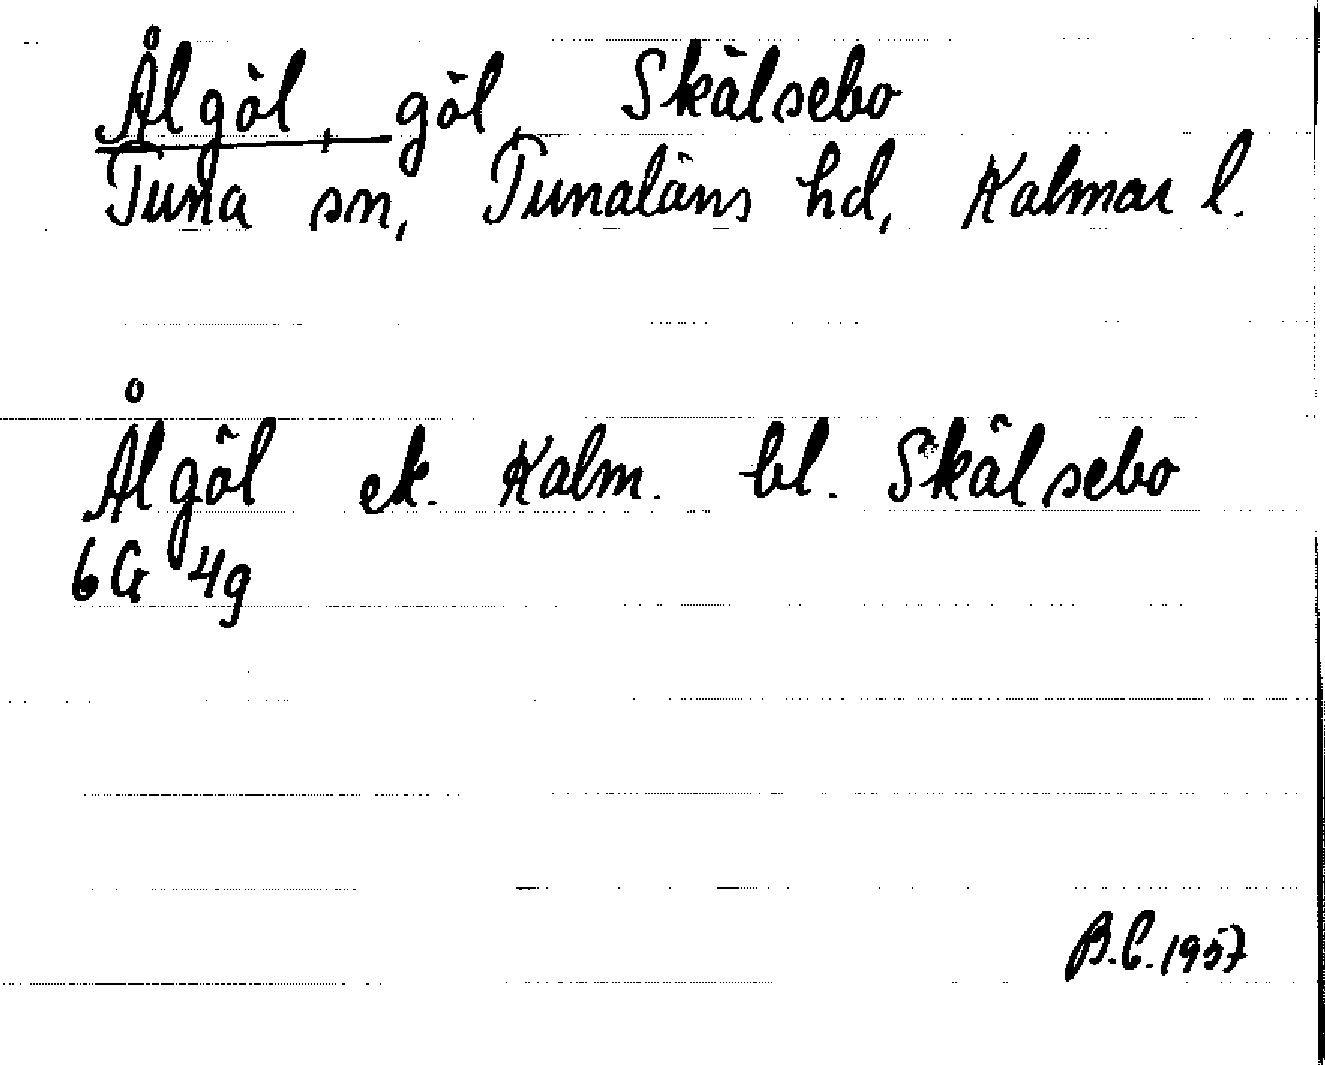 Ålgöl, göl, Skälsebo
Tuna sn, Tunaläns hd, Kalmar l.
Ålgöl ek. Kalm. bl. Skälsebo
6G 4g
B.C. 1957